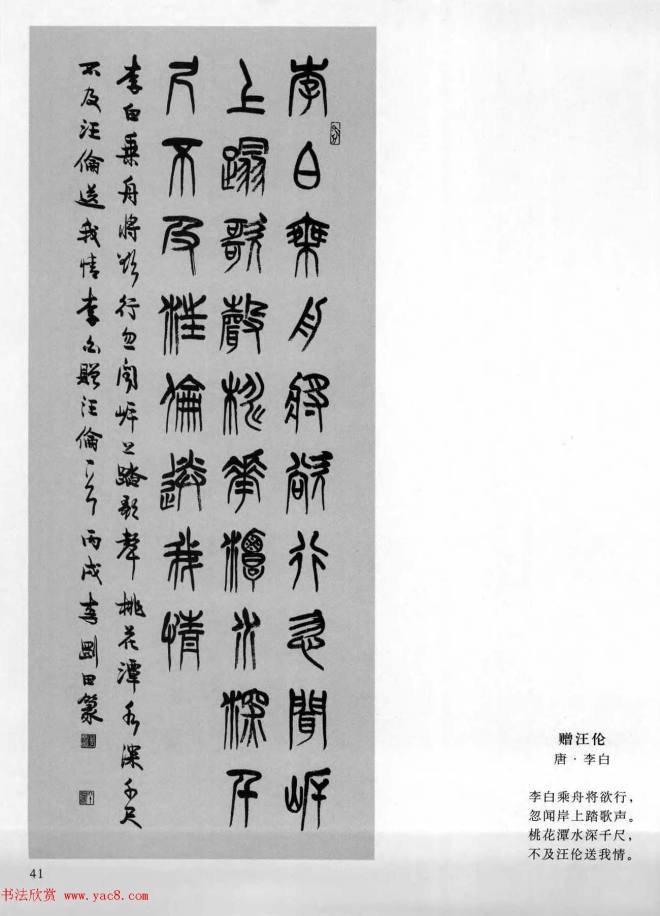 李白乘舟將欲行忽聞岸
上蹋歌聲桃花潭水深千
尺不及汪倫送我情
李白乘舟將欲行忽聞岸上踏歌聲桃花潭水深千尺
不及汪倫送我情李白贈汪倫一首丙戌李剛田篆
赠汪伦
唐·李白
李白乘舟将欲行，
忽闻岸上踏歌声。
桃花潭水深千尺，
不及汪伦送我情。
41
书法欣赏 www.yac8.com